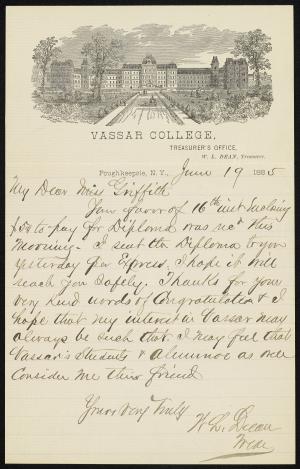 VASSAR COLLEGE,
TREASURER'S OFFICE,
W. L. DEAN, Treasurer.
Poughkeepsie, N. Y., June 19 1885
My Dear Miss Griffith
Your favor of 16th inst inclosing
$5 to pay for Diploma was recd this
Morning. I sent the Diploma to you
yesterday per Express. I hope it will
reach you safely. Thanks for your
very kind words of Congratulation & I
hope that my interest in Vassar may
always be such that I may feel that
Vassar's Students & Alumnae as ever
Consider me their friend
Yours Very Truly
W. L. Dean
Treas